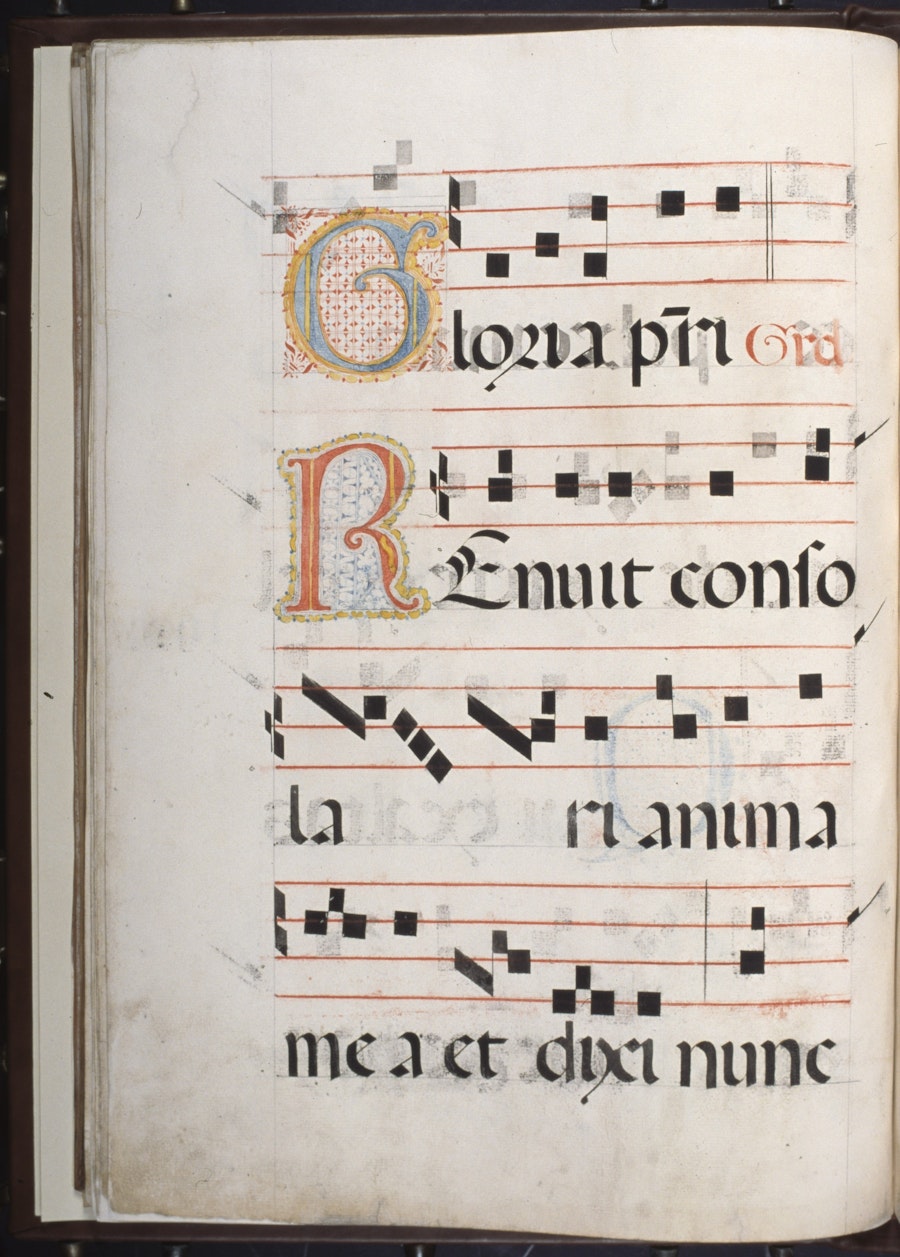 Gloria pr̄i Grd
REnuit conſo
la ri anima
me a et dixi nunc